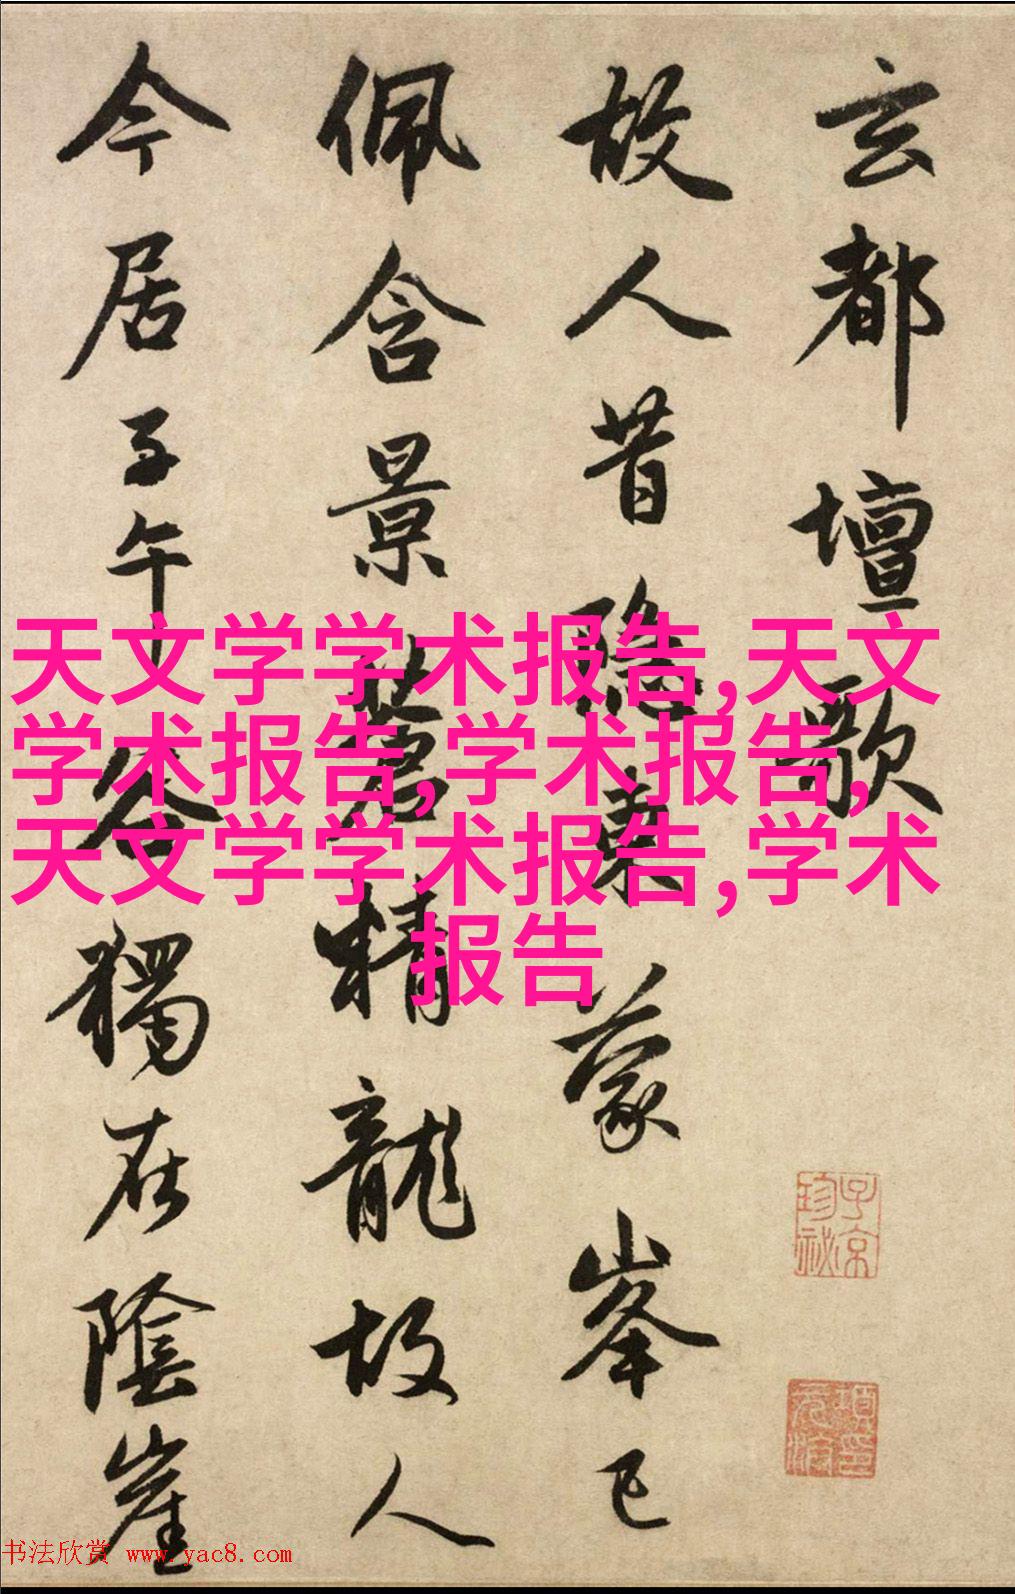 玄都壇歌
故人昔隱東蒙峯已
佩含景蒼精龍故人
今居子午谷獨在陰崖
天文学学术报告,天文
学术报告,学术报告,
天文学学术报告,学术
报告
子京
珍祕
书法欣赏 www.yac8.com